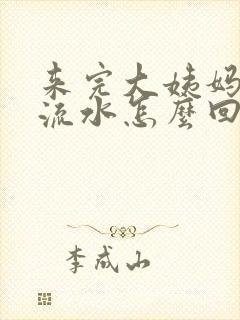 来完大姨妈
流水怎麽回
李成山